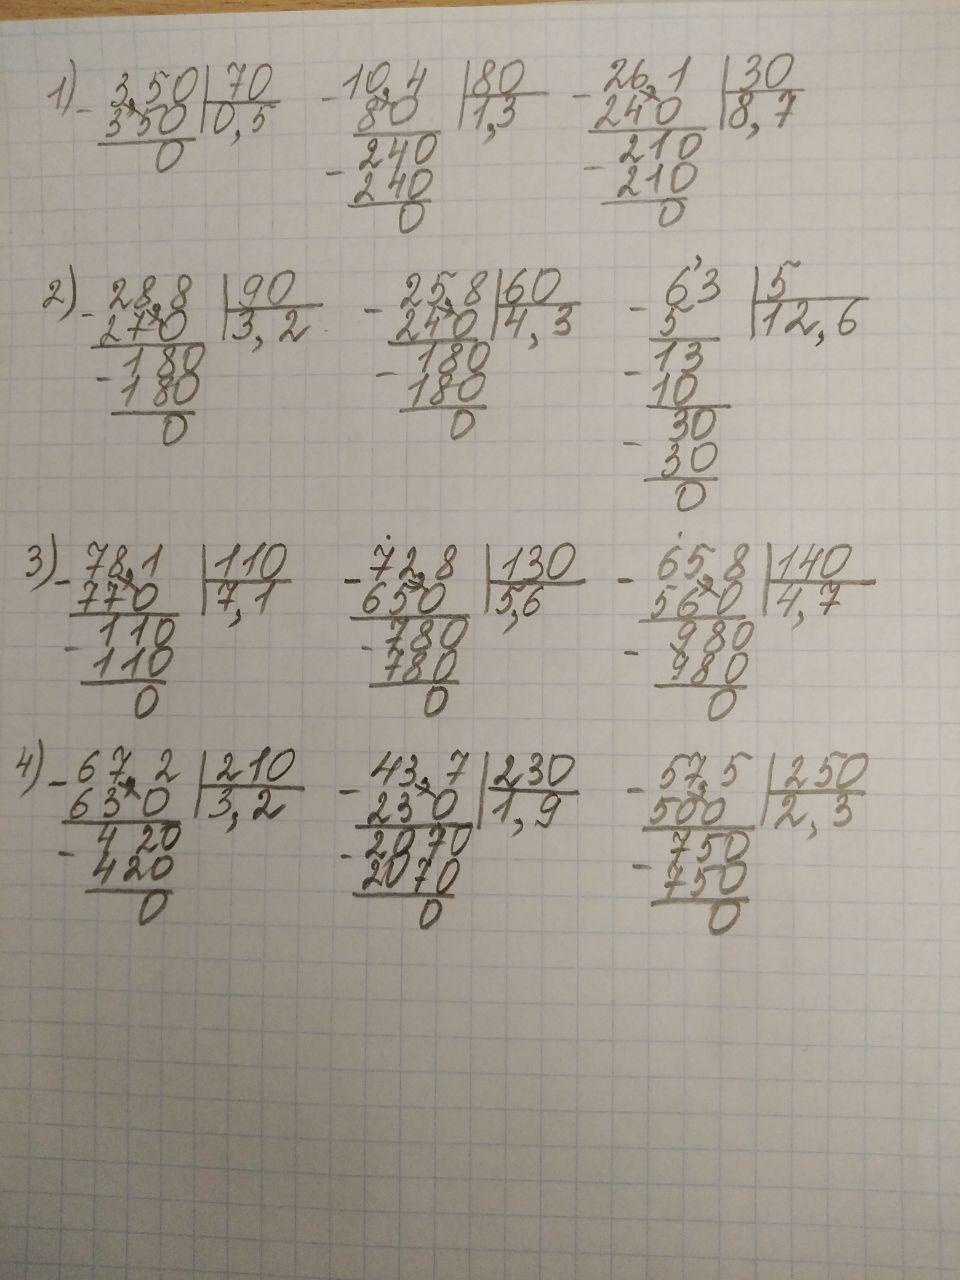 1) - 3,50 | 70 - 10,4 | 80 - 26,1 | 30
350 | 0,5 80 | 1,3 240 | 8,7
0 240 210
- 240 - 210
0 0
2) - 28,8 | 90 - 25,8 | 60 - 63 | 5
270 | 3,2 240 | 4,3 5 | 12,6
- 180 - 180 - 13
180 180 10
0 0 - 30
30
0
3) - 78,1 | 110 - 72,8 | 130 - 65,8 | 140
770 | 7,1 650 | 5,6 560 | 4,7
- 110 - 780 - 980
110 780 980
0 0 0
4) - 67,2 | 210 - 43,7 | 230 - 57,5 | 250
630 | 3,2 230 | 1,9 500 | 2,3
- 420 - 2070 - 750
420 2070 750
0 0 0